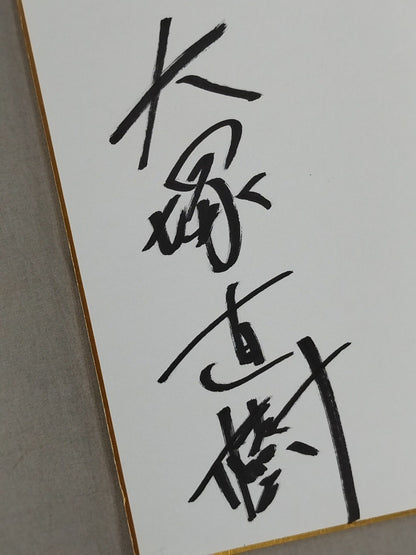 大塚直樹